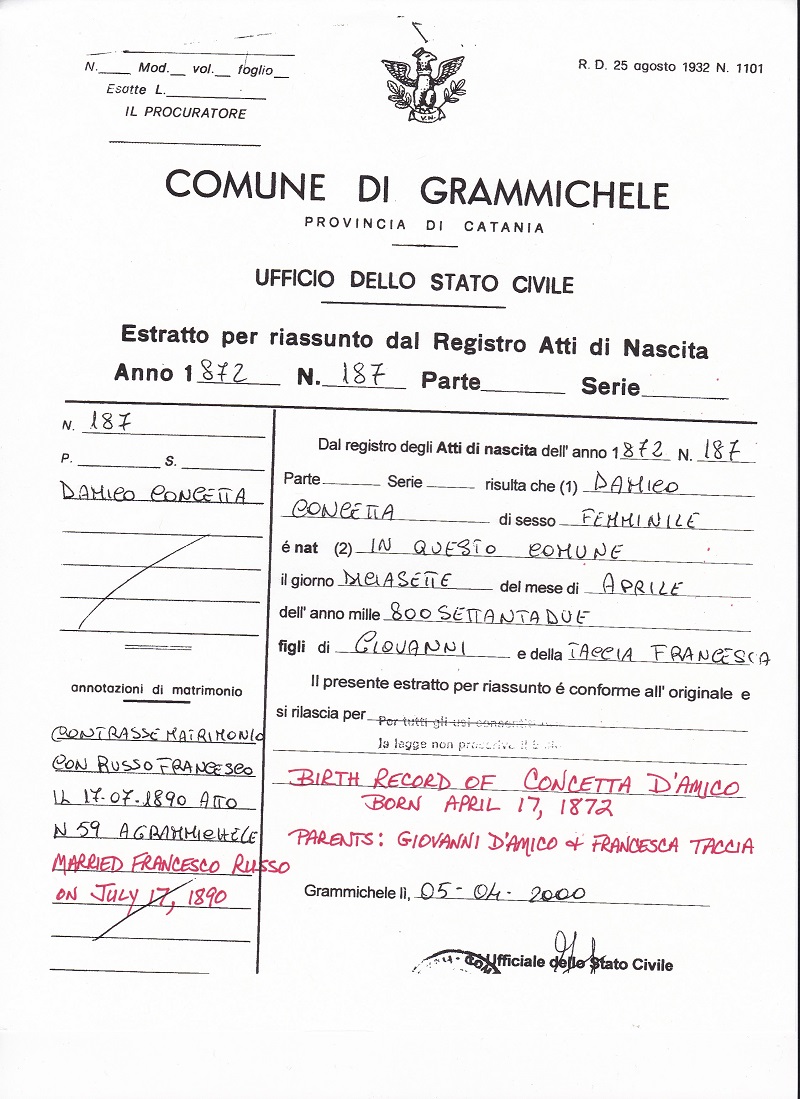 N.____ Mod.__ vol.__ foglio__
Esatte L.____________
IL PROCURATORE
V.N.
R. D. 25 agosto 1932 N. 1101
COMUNE DI GRAMMICHELE
PROVINCIA DI CATANIA
UFFICIO DELLO STATO CIVILE
Estratto per riassunto dal Registro Atti di Nascita
Anno 1872 N. 187 Parte______ Serie______
N. 187
P. __________ S. __________
DAMICO CONCETTA
annotazioni di matrimonio
CONTRASSE MATRIMONIO
CON RUSSO FRANCESCO
IL 17-07-1890 ATTO
N 59 A GRAMMICHELE
MARRIED FRANCESCO RUSSO
ON JULY 17, 1890
Dal registro degli Atti di nascita dell' anno 1872 N. 187
Parte______ Serie______ risulta che (1) DAMICO
CONCETTA di sesso FEMMINILE
é nat (2) IN QUESTO COMUNE
il giorno DICIASETTE del mese di APRILE
dell' anno mille 800SETTANTADUE
figli di GIOVANNI e della TACCIA FRANCESCA
Il presente estratto per riassunto é conforme all' originale e
si rilascia per Per tutti gli usi
la legge non
BIRTH RECORD OF CONCETTA D'AMICO
BORN APRIL 17, 1872
PARENTS: GIOVANNI D'AMICO & FRANCESCA TACCIA
Grammichele lì, 05-04-2000
Ufficiale dello Stato Civile